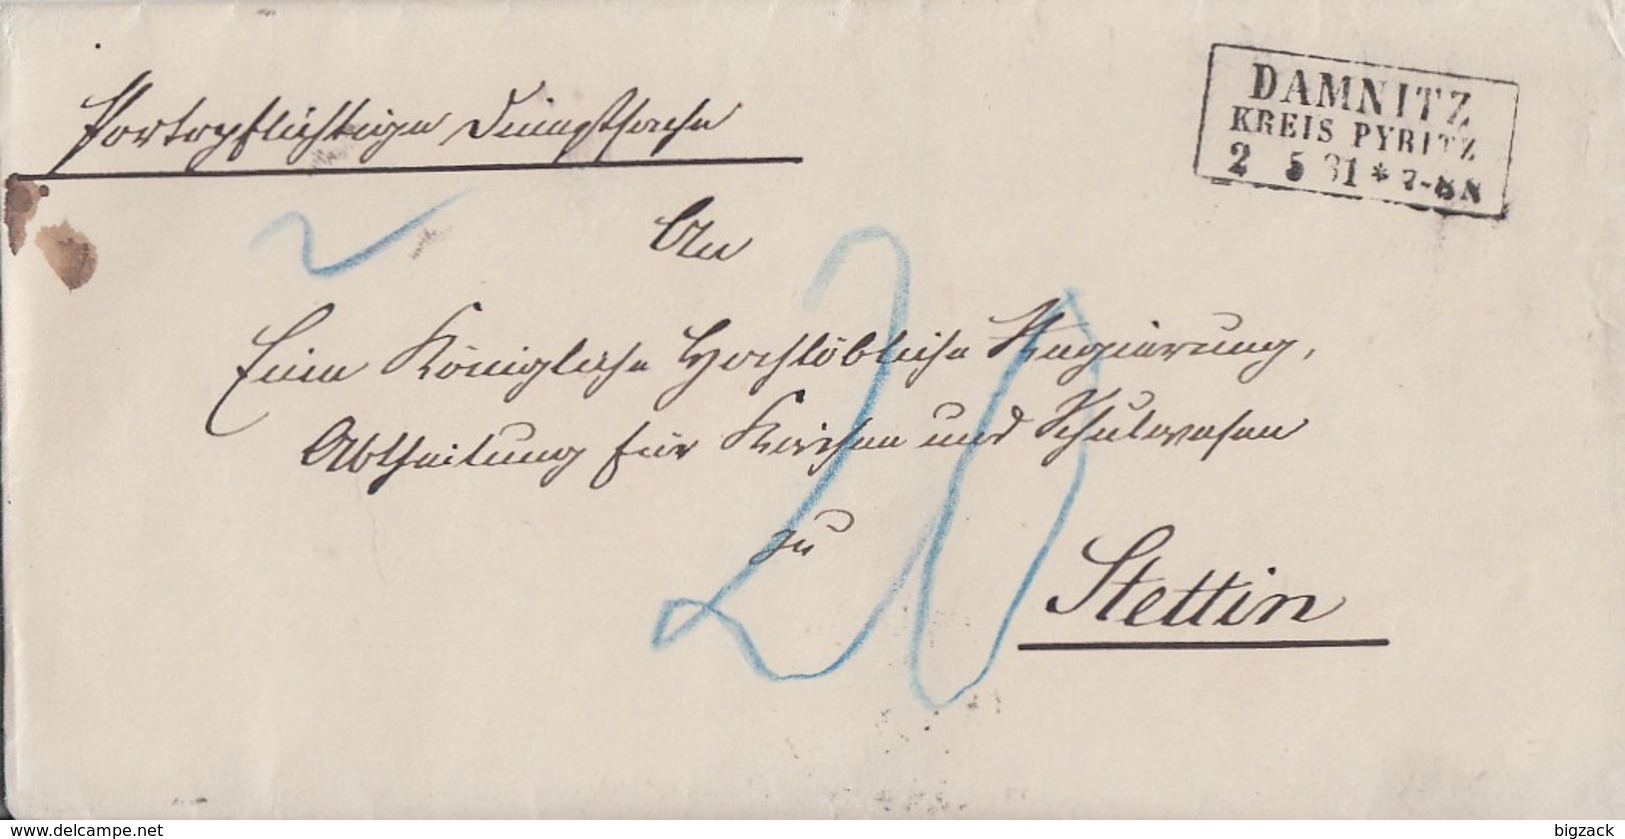 Portopflichtige Dienstsache
DAMNITZ
KREIS PYRITZ
2 5 81 * 7-8 N
An
Eine Königliche Hochlöbliche Regierung,
Abtheilung für Kirchen und Schulwesen
zu
Stettin
20
www.delcampe.net
bigzack